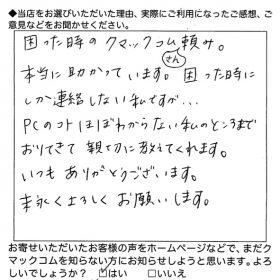 ◆当店をお選びいただいた理由、実際にご利用になったご感想、ご
意見などをお聞かせください。
困った時のクマックコムさん頼み。
本当に助かっています。困った時に
しか連絡しない私ですが…
PCのコトほぼわからない私のところまで
おりてきて親切に教えてくれます。
いつもありがとうございます。
末永くよろしくお願いします。
お寄せいただいたお客様の声をホームページなどで、まだク
マックコムを知らない方にお知らせしようと思います。よろ
しいでしょうか？ ☑はい □いいえ